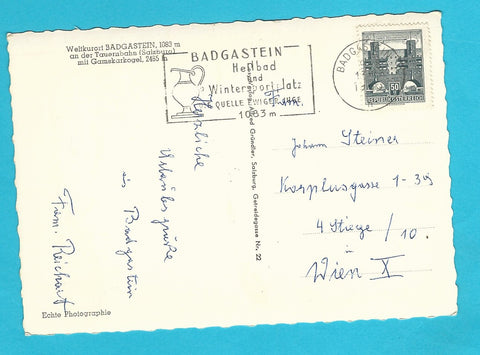 Weltkurort BADGASTEIN, 1083 m
an der Tauernbahn (Salzburg)
mit Gamskarkogel, 2465 m
BADGASTEIN
Heilbad
und
Wintersportplatz
QUELLE EWIGER
1083 m
BADGAS
REPUBLIK ÖSTERREICH
50
Herzliche
Urlaubsgrüße
aus Badgastein
Fam.
Gründler, Salzburg, Getreidegasse Nr. 22
Fam.
Johann Steiner
Karplusgasse 1-39
4 Stiege / 10.
Wien X
Echte Photographie